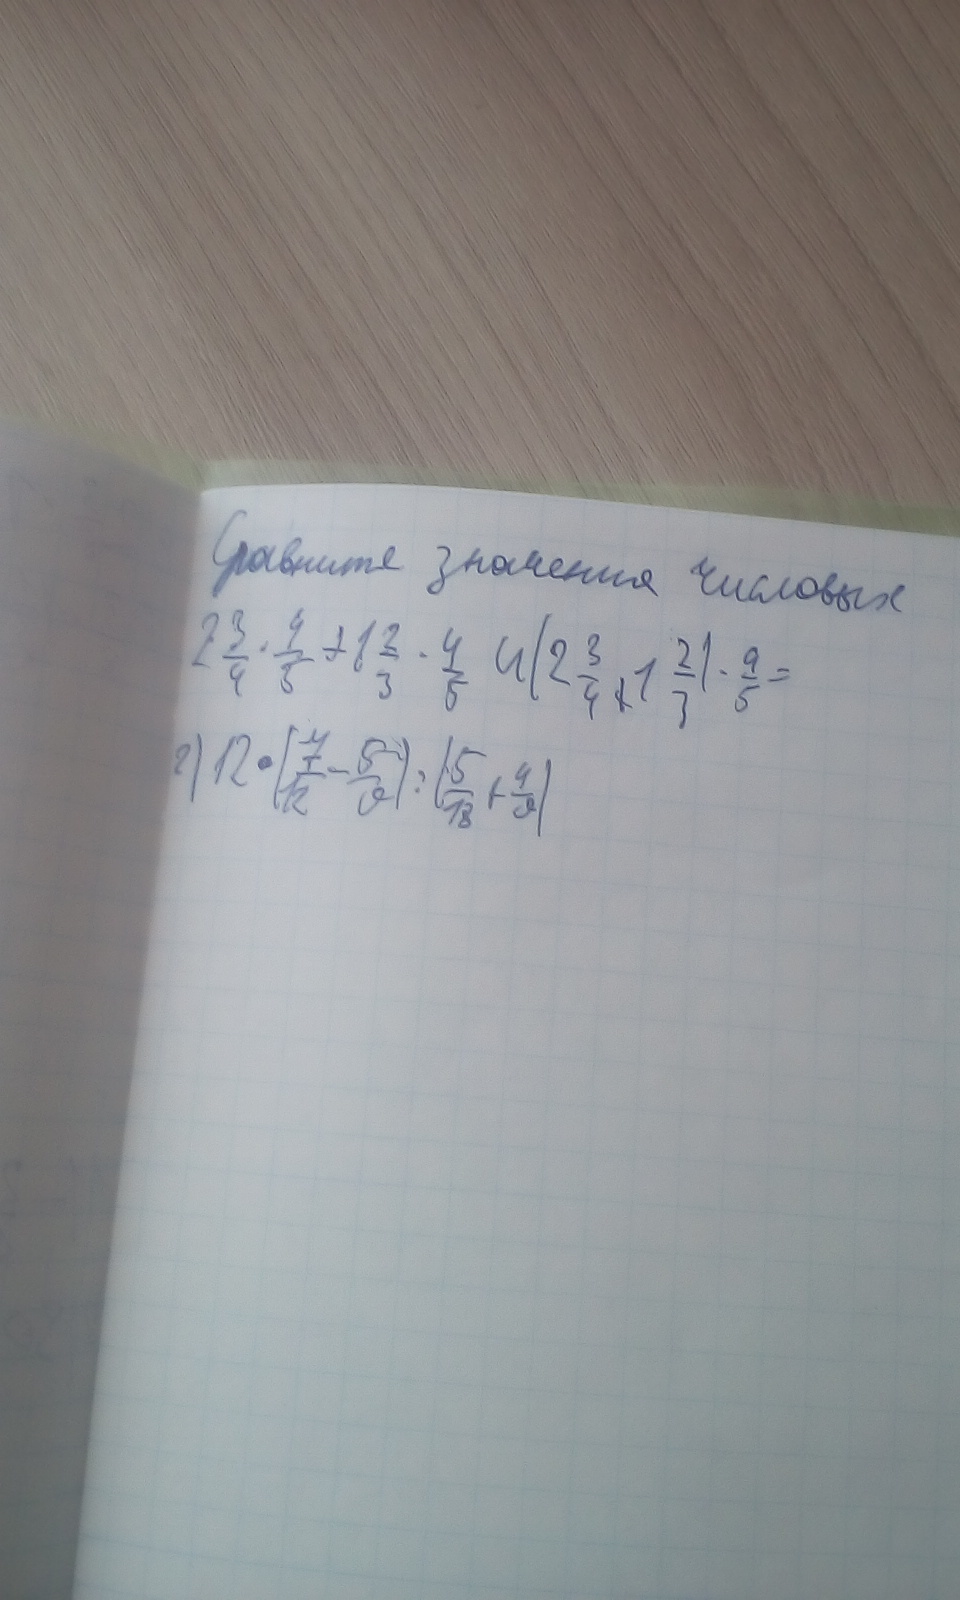 Сравните значения числовых
2 3/4 · 4/5 + 1 2/3 · 4/5 и (2 3/4 + 1 2/3) · 4/5 =
г) 12 · (7/12 - 5/9) : (5/18 + 4/9)